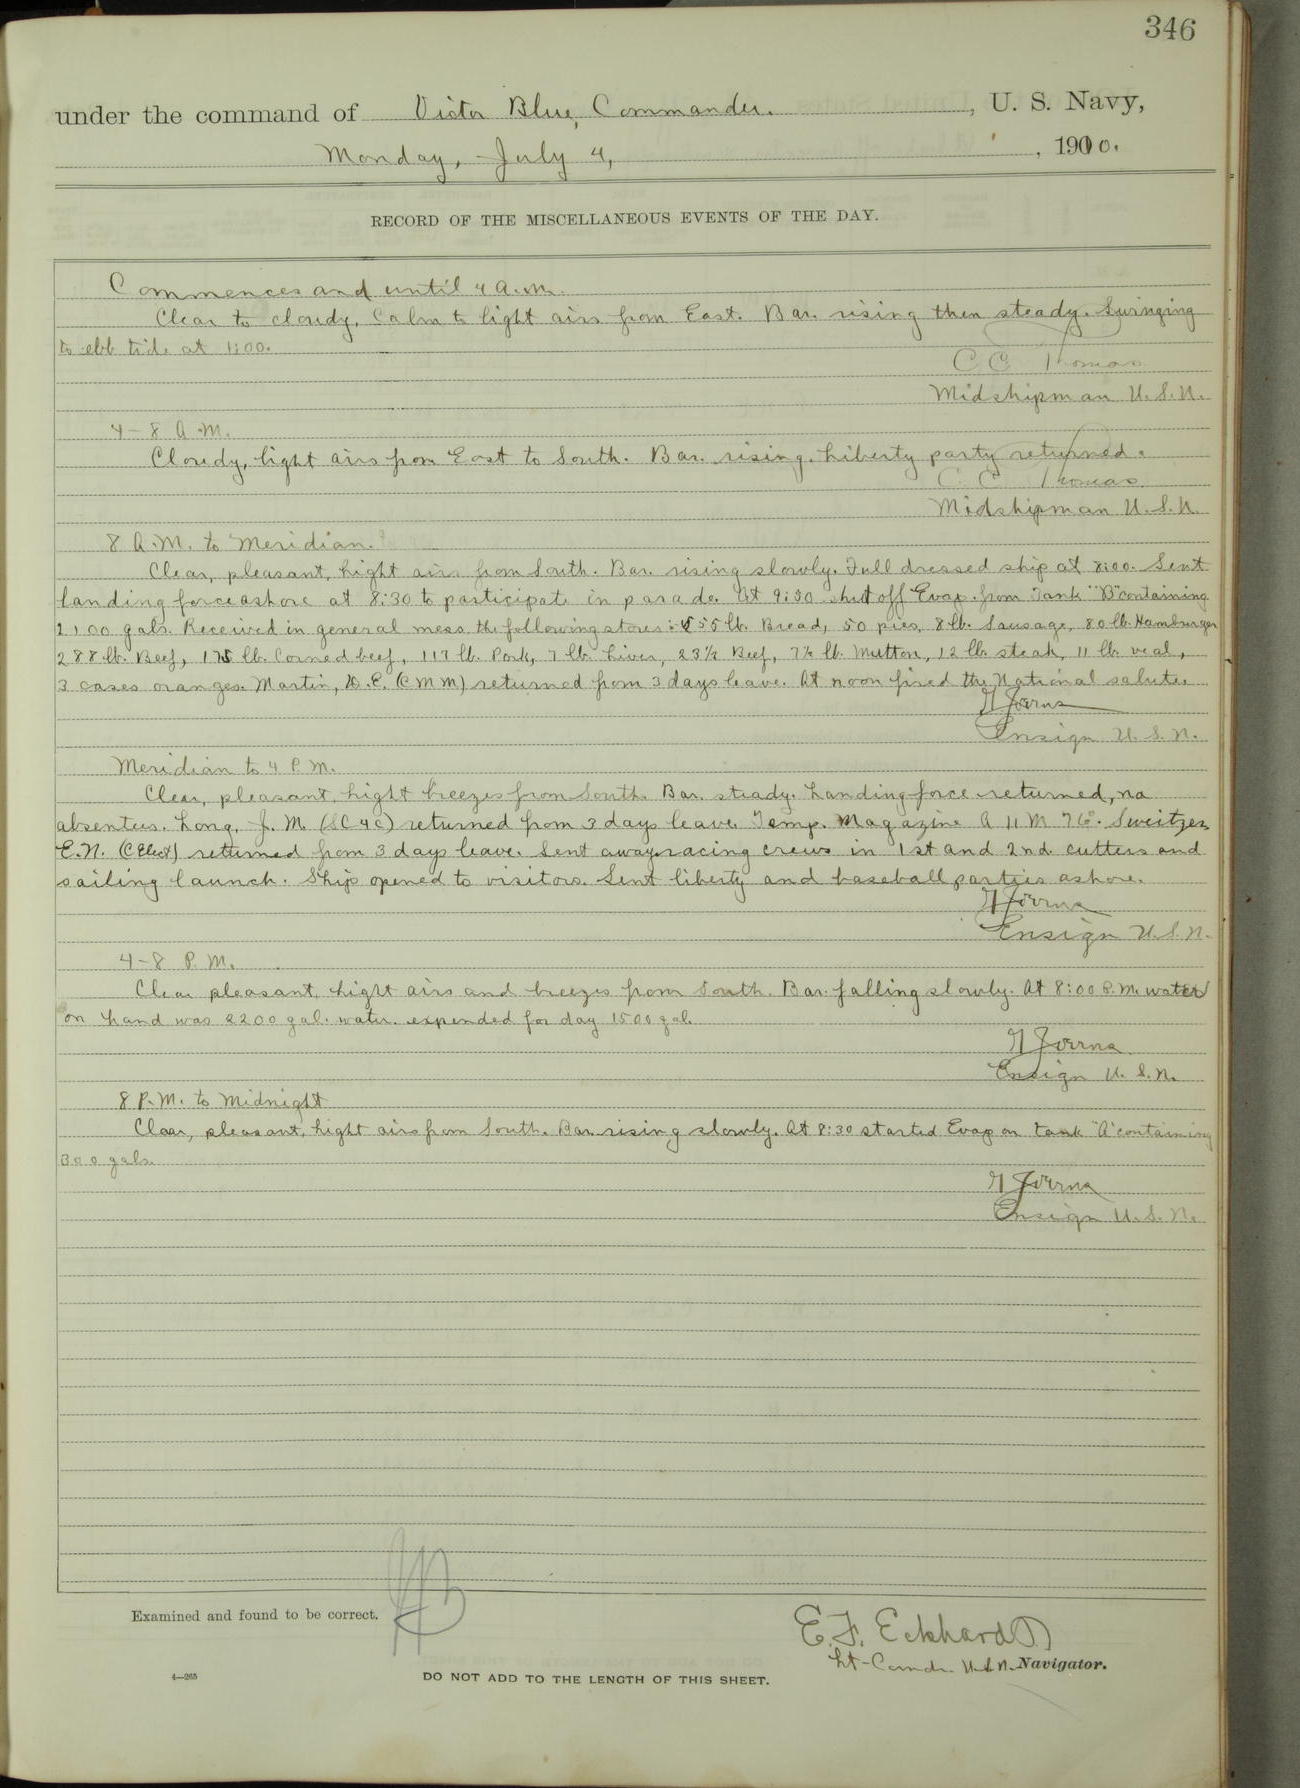 346
under the command of Victor Blue, Commander. , U. S. Navy,
Monday, July 4, , 1910.
RECORD OF THE MISCELLANEOUS EVENTS OF THE DAY.
Commences and until 4 a.m.
Clear to cloudy. Calm to light airs from East. Bar. rising then steady. Swinging
to ebb tide at 1:00.
C C Thomas
Midshipman U.S.N.
4-8 A.M.
Cloudy, light airs from East to South. Bar. rising. Liberty party returned.
C C Thomas
Midshipman U.S.N.
8 A.M. to Meridian.
Clear, pleasant, light airs from South. Bar. rising slowly. Full dressed ship at 8:00. Sent
landing force ashore at 8:30 to participate in parade. At 9:30 shut off Evap. from Tank "B" containing
2100 gals. Received in general mess the following stores: 55 lb. Bread, 50 pies, 8 lb. Sausage, 80 lb. Hamburger
288 lb. Beef, 175 lb. Corned beef, 117 lb. Pork, 7 lb. Liver, 23½ Beef, 7½ lb. Mutton, 12 lb. steak, 11 lb. veal,
3 cases oranges. Martin, D.E. (CMM) returned from 3 days leave. At noon fired the National salute.
Ensign U.S.N.
Meridian to 4 P.M.
Clear, pleasant, light breezes from South. Bar. steady. Landing force returned, no
absentees. Long, J. M. (SC4c) returned from 3 days leave. Temp. Magazine A 11 M 76°. Sweitzer
E.N. (C Elect) returned from 3 days leave. Sent away racing crews in 1st and 2nd cutters and
sailing launch. Ship opened to visitors. Sent liberty and baseball parties ashore.
Ensign U.S.N.
4-8 P.M.
Clear pleasant, light airs and breezes from South. Bar. falling slowly. At 8:00 P.M. water
on hand was 2200 gal. water expended for day 1500 gal.
Ensign U.S.N.
8 P.M. to Midnight
Clear, pleasant, light airs from South. Bar. rising slowly. At 8:30 started Evap on tank "A" containing
300 gals.
Ensign U.S.N.
Examined and found to be correct.
E. F. Eckhardt
Lt-Comdr. U.S.N. Navigator.
4—265
DO NOT ADD TO THE LENGTH OF THIS SHEET.